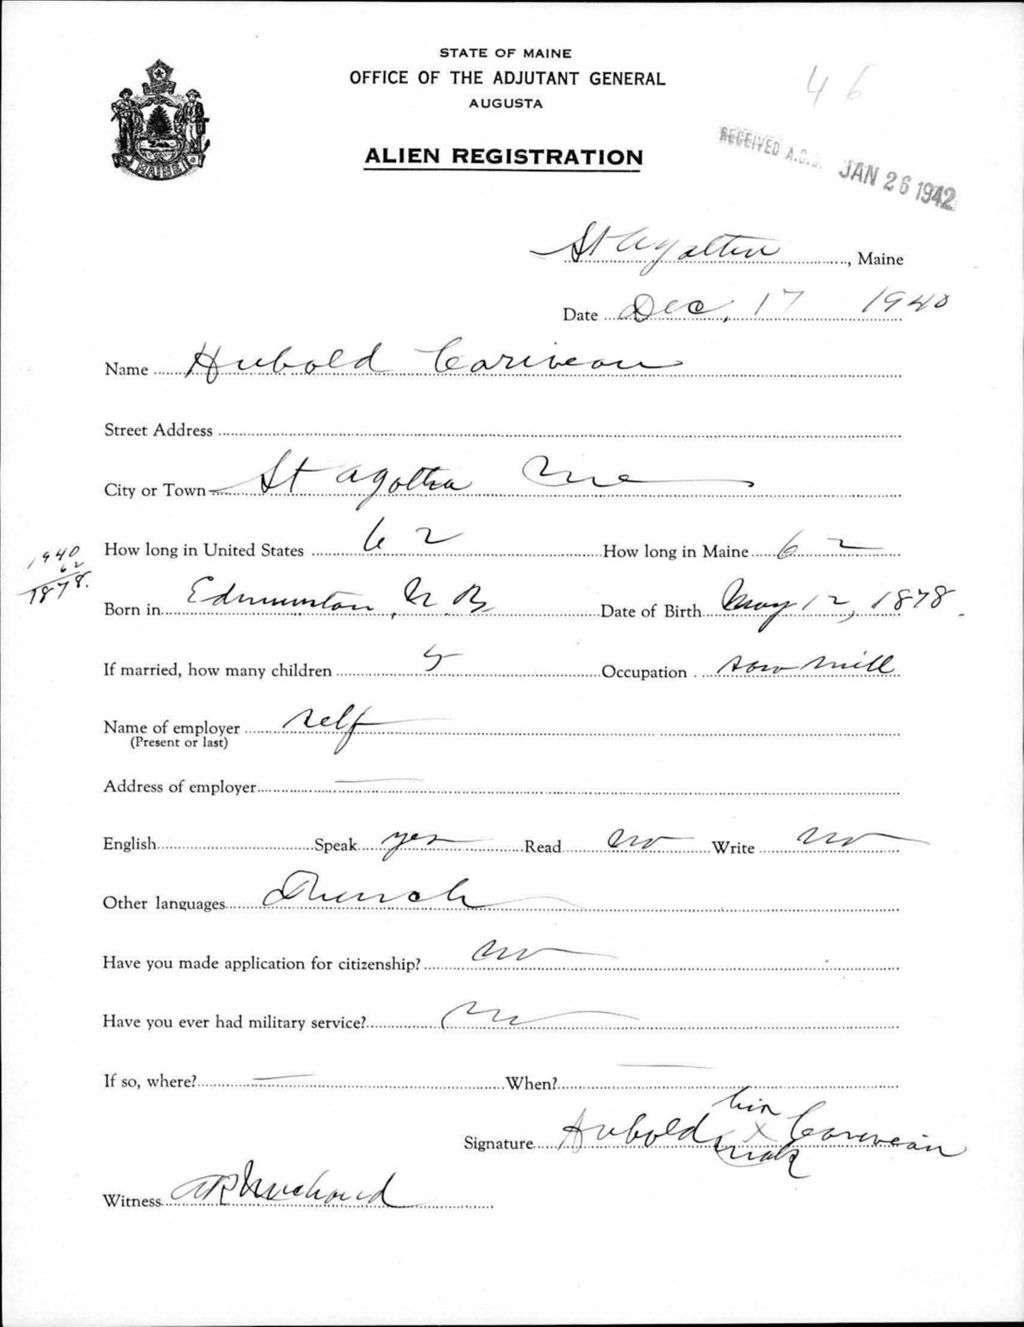 STATE OF MAINE
OFFICE OF THE ADJUTANT GENERAL
AUGUSTA
46
ALIEN REGISTRATION
RECEIVED A.G.O. JAN 26 1942
MAINE
St Agatha, Maine
Date Dec. 17 1940
Name Hubold Cariveau
Street Address
City or Town St Agatha Me
1940
62
1878.
How long in United States 62 How long in Maine 62
Born in Edmunston, N. B. Date of Birth May 12, 1878.
If married, how many children 5 Occupation saw mill
Name of employer self
(Present or last)
Address of employer —
English Speak yes Read no Write no
Other languages French
Have you made application for citizenship? no
Have you ever had military service? no
If so, where? — When? —
his
Signature Hubold X Cariveau
mark
Witness